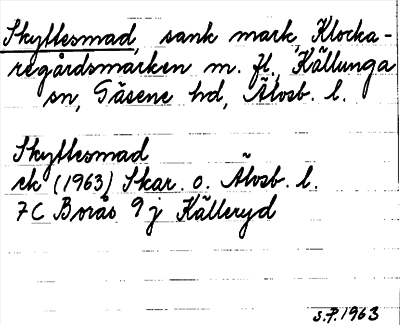 Skyttesmad, sank mark, Klocka-
regårdsmarken m. fl., Källunga
sn, Gäsene hd, Älvsb. l.
Skyttesmad
ek (1963) Skar. o. Älvsb. l.
7C Borås 9 j Källeryd
S.P. 1963